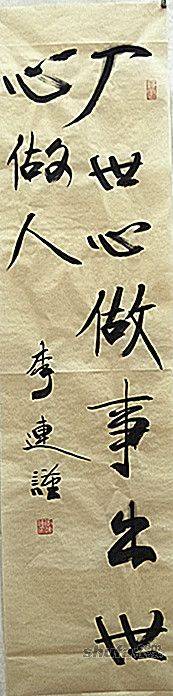 入世心做事出世
心做人
李連謹